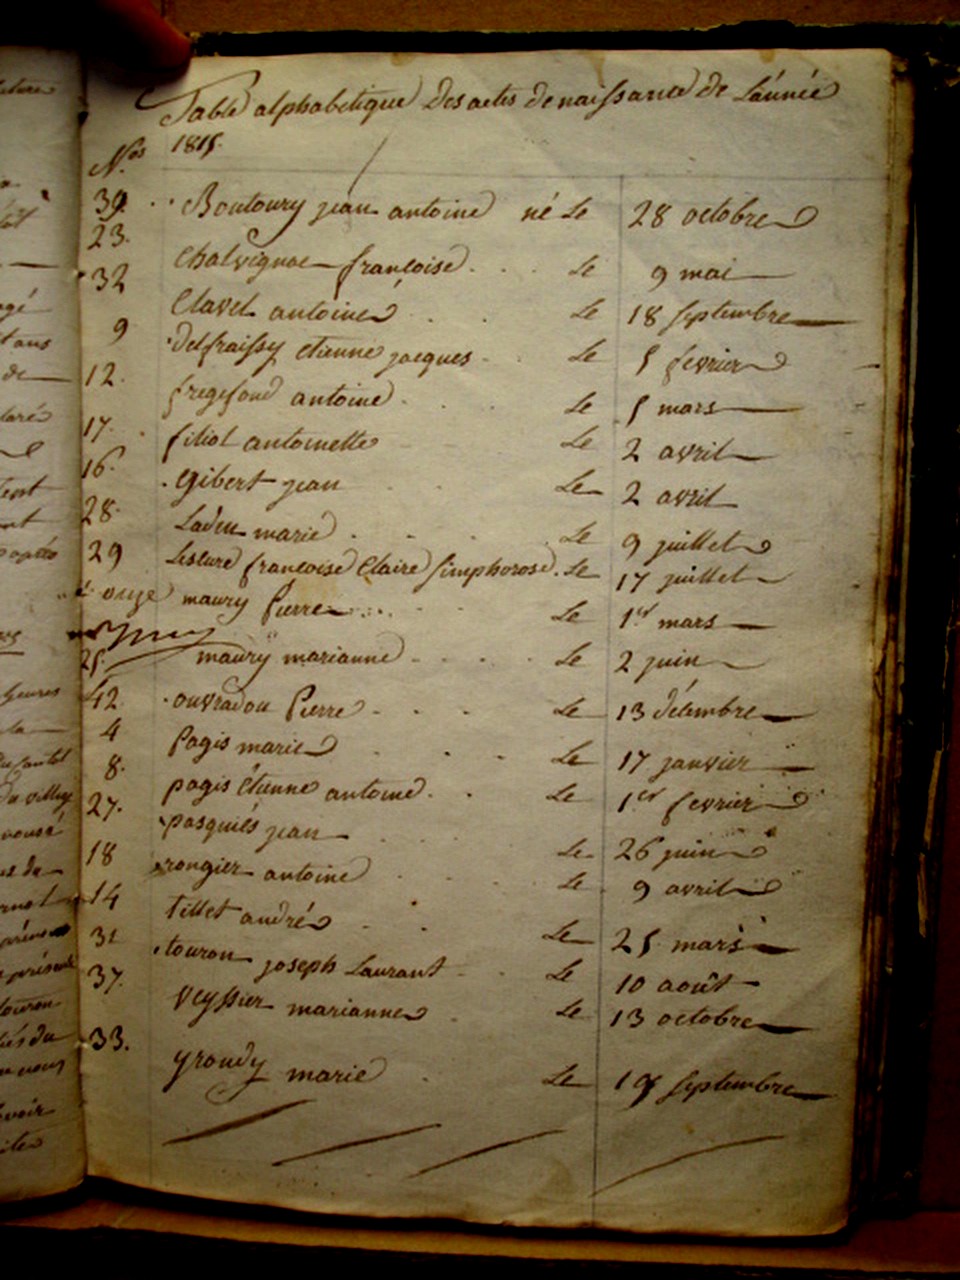 Table alphabetique Des actes de naissance de L'année
Nos 1815.
39. Boutoury jean antoine né Le 28 octobre
23. Chalvignac françoise Le 9 mai
32 Clavel antoine Le 18 septembre
9 Delfraissy etienne jacques Le 5 fevrier
12. fregefond antoine Le 5 mars
17. filiol antoinette Le 2 avril
16. Gibert jean Le 2 avril
28. Ladeu marie Le 9 juillet
29 Lesture françoise Claire Simphorose. Le 17 juillet
onze maury Pierre Le 1er mars
25. maury marianne Le 2 juin
42 ouvradou Pierre Le 13 décembre
4 Pagis marie Le 17 janvier
8. pagis étienne antoine Le 1er fevrier
27. pasquiés jean Le 26 juin
18 rongier antoine Le 9 avril
14 tillet andré Le 25 mars
31 touron joseph Laurant Le 10 août
37. Veyssier marianne Le 13 octobre
33. yroudy marie Le 19 septembre